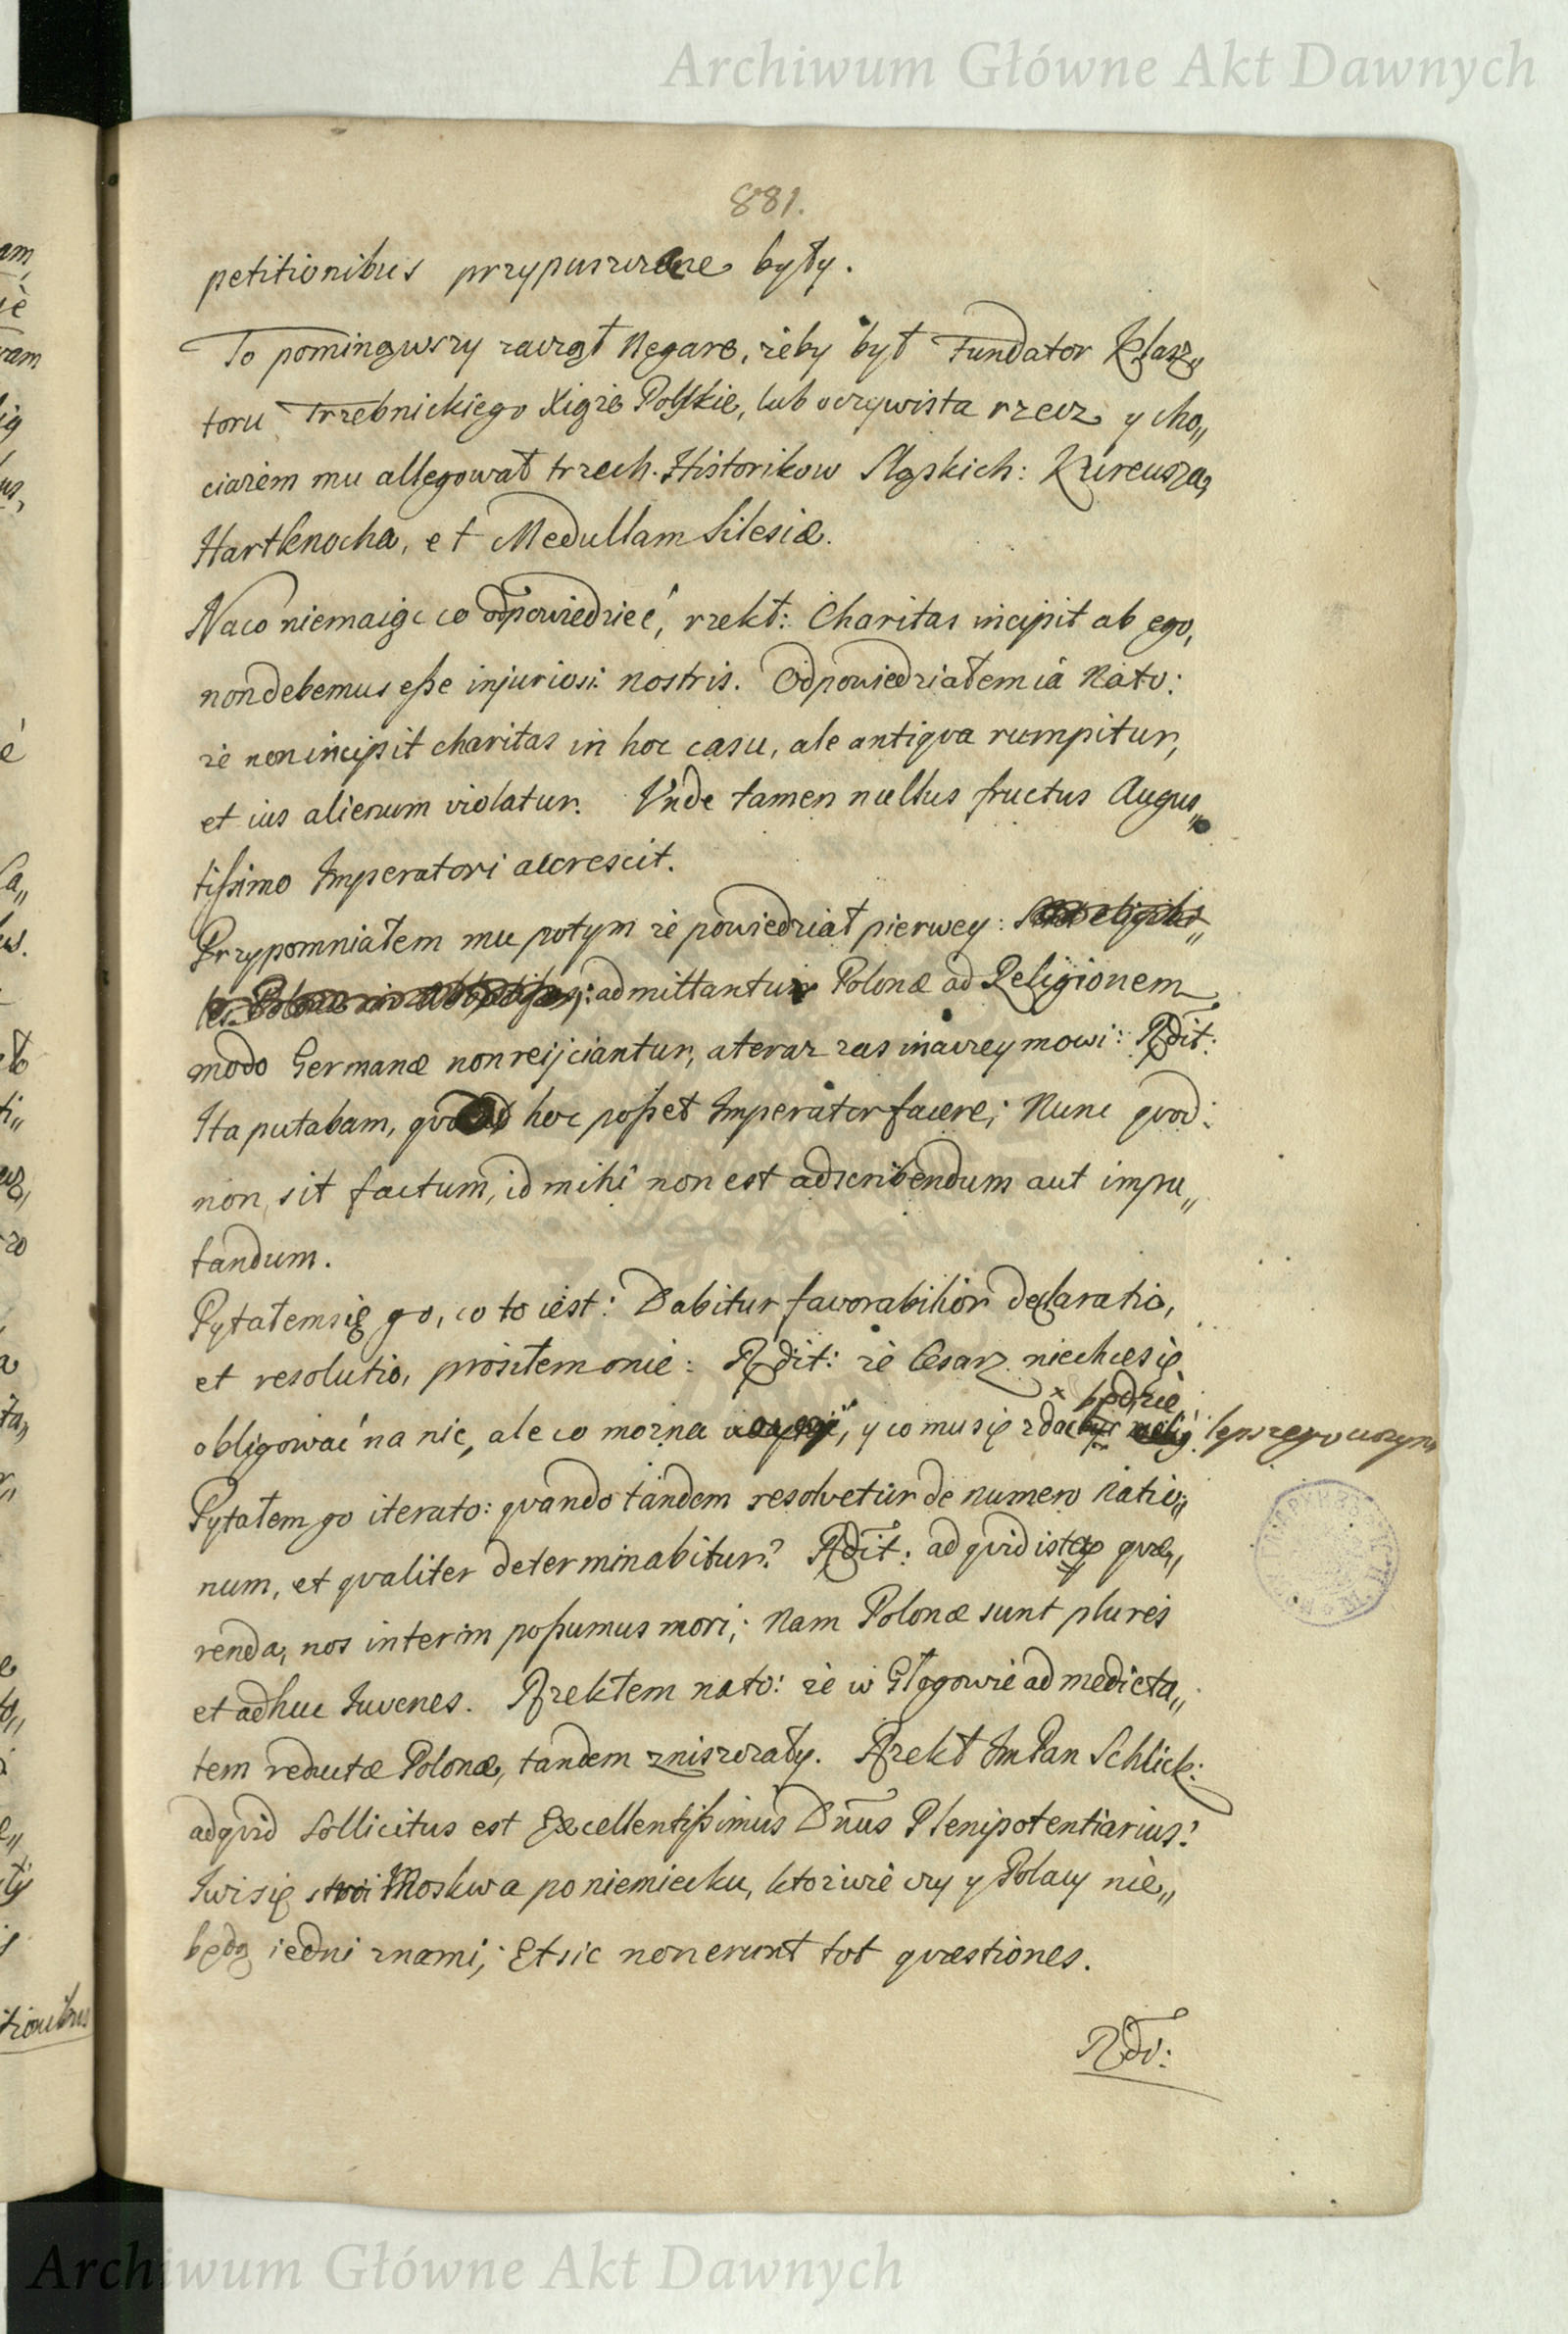 Archiwum Główne Akt Dawnych
881.
petitionibus przypuszczone były.
To pominąwszy zaczął Negare, żeby był Fundator Klasz„
toru Trzebnickiego Xiąże Polskie, lub oczywista rzecz y cho„
ciażem mu allegował trzech Historikow Sląskich: Kureusza,
Hartknocha, et Medullam Silesiæ.
Naco niemaiąc co odpowiedzieć, rzekł: Charitas incipit ab ego,
non debemus eße injuriosi nostris. Odpowiedziałem ia Nato:
że non incipit charitas in hoc casu, ale antiqva rumpitur,
et ius alienum violatur. Vnde tamen nullus fructus Augus„
tißimo Imperatori accrescit.
Przypomniałem mu potym że powiedział pierwey:
admittantur Polonæ ad Religionem
modo Germanæ non reijciantur, a teraz zas inaczey mowi: Rdit:
Ita putabam, qvod hoc poßet Imperator facere; Nunc qvod:
non sit factum, id mihi non est adscribendum aut impu„
tandum.
Pytałem się go, co to iest: Dabitur favorabilior declaratio,
et resolutio, prosiłem onię: Rdit: że Cesarz niechce się
będzie
obligować na nic, ale co można y co mu się zdać lepszego uczyni
Pytałem go iterato: qvando tandem resolvetur de numero Natio„
num, et qvaliter determinabitur? Rdit: ad qvid ista qvæ„
renda, nos interim poßumus mori; Nam Polonæ sunt plures
et adhuc Iuvenes. Rzekłem nato: że w Głogowie ad medieta„
tem reductæ Polonæ, tandem zniszczały. Rzekł Im Pan Schlick:
ad qvid sollicitus est Excellentißimus Dnus Plenipotentiarius?
Iusz się stroi Moskwa po niemiecku, ktoż wie czy y Polacy nie„
będą iedni znami; Et sic non erunt tot qvæstiones.
Rdi:
Archiwum Główne Akt Dawnych